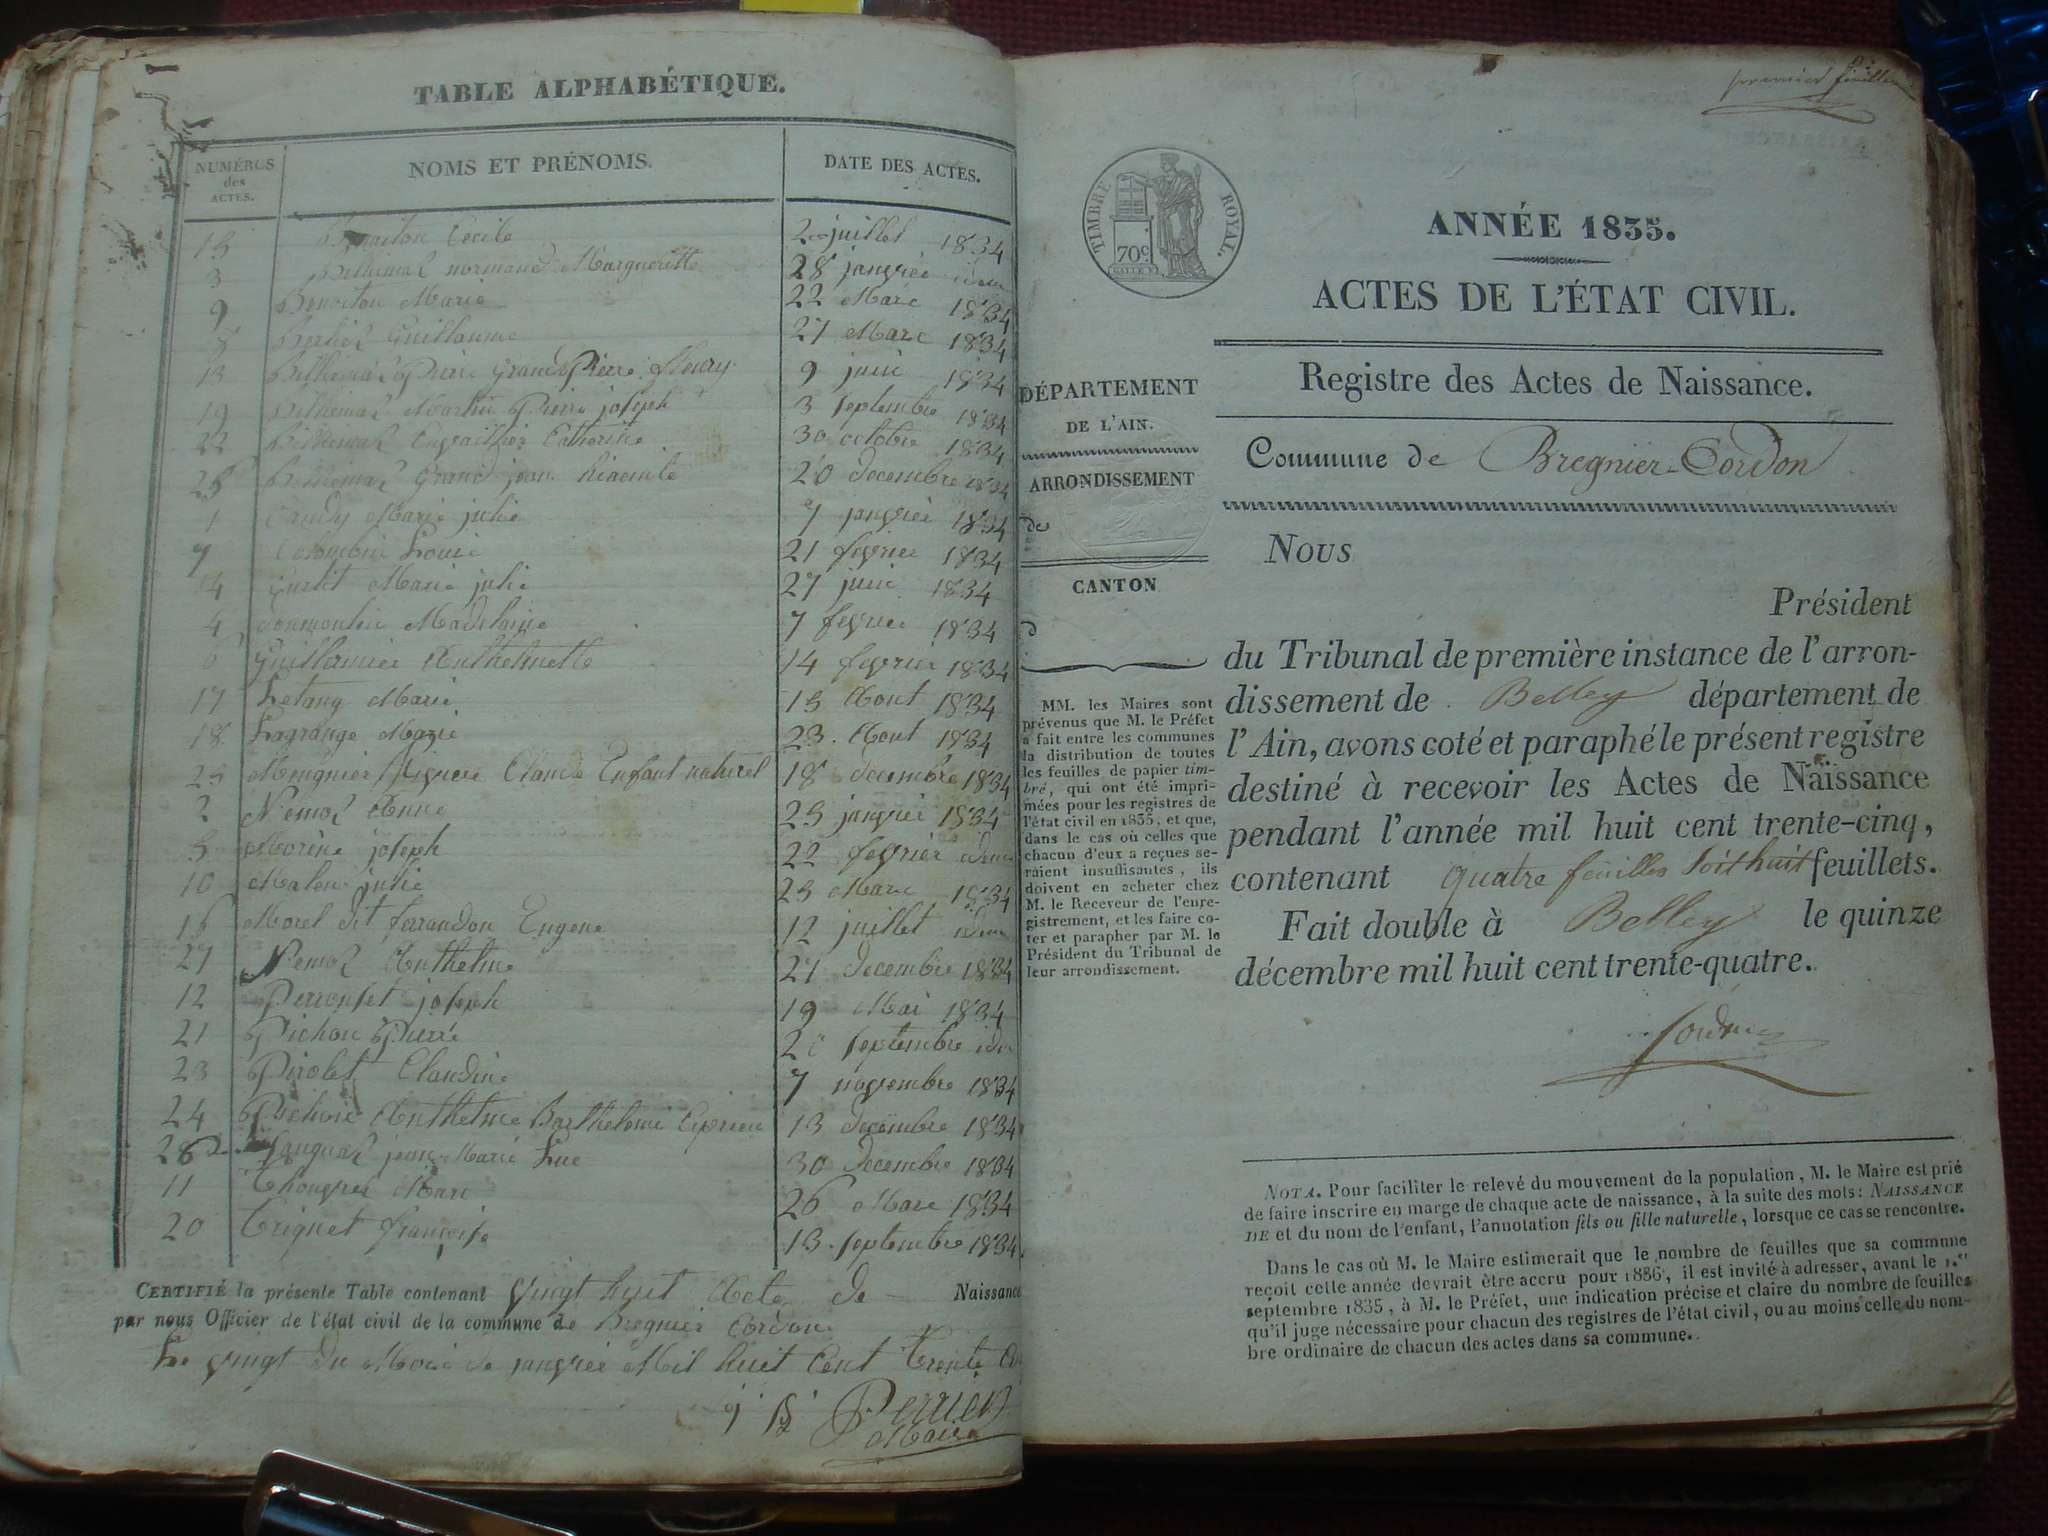 TABLE ALPHABÉTIQUE.
NUMÉROS des ACTES. NOMS ET PRÉNOMS. DATE DES ACTES.
Cecile juillet 1834
3 normand Margueritte 28 janvier idem
9 Benoiton Marie 22 Mars 1834
Guillaume 27 Mars 1834
13 Pierre grand Pierre fleury 9 juin 1834
19 Martin Pierre joseph 3 septembre 1834
22 Catherine 30 octobre 1834
grand jean 20 decembre 1834
1 Candy Marie julie 7 janvier 1834
7 Louise 21 fevrier 1834
14 Marie julie 27 juin 1834
4 Madelaine 7 fevrier 1834
6 Guillermier Anthelmette 14 fevrier 1834
17 Letang Marie 15 Aout 1834
18 Lagrange Marie 23 Aout 1834
Claude Enfant naturel 18 decembre 1834
2 Nemoz Anne 25 janvier 1834
5 Morine joseph 22 fevrier idem
10 julie 25 Mars 1834
Morel dit ferrandon Eugene 12 juillet idem
27 Nemoz Anthelme 27 decembre 1834
12 joseph 19 Mai 1834
21 Pichon Pierre septembre idem
23 Pirolet Claudine 7 novembre 1834
24 Anthelme Barthelemi Ciprien 13 decembre 1834
28 jean Marie Luc 30 decembre 1834
11 Marc 26 Mars 1834
20 Triquet françoise 13 septembre 1834
CERTIFIÉ la présente Table contenant vingt huit Acte de Naissance
par nous Officier de l'état civil de la commune de Bregnier Cordon
Le vingt du Mois de janvier Mil huit Cent Trente
Perrier
Maire
premier feuillet
TIMBRE ROYAL.
70c
ANNÉE 1835.
ACTES DE L'ÉTAT CIVIL.
Registre des Actes de Naissance.
Commune de Bregnier-Cordon
DÉPARTEMENT
DE L'AIN.
ARRONDISSEMENT
de
CANTON
d
MM. les Maires sont
prévenus que M. le Préfet
a fait entre les communes
la distribution de toutes
les feuilles de papier tim-
bré, qui ont été impri-
mées pour les registres de
l'état civil en 1835, et que,
dans le cas où celles que
chacun d'eux a reçues se-
raient insuffisantes, ils
doivent en acheter chez
M. le Receveur de l'enre-
gistrement, et les faire co-
ter et parapher par M. le
Président du Tribunal de
leur arrondissement.
Nous
Président
du Tribunal de première instance de l'arron-
dissement de Belley département de
l'Ain, avons coté et paraphé le présent registre
destiné à recevoir les Actes de Naissance
pendant l'année mil huit cent trente-cinq,
contenant quatre feuilles soit huit feuillets.
Fait double à Belley le quinze
décembre mil huit cent trente-quatre.
NOTA. Pour faciliter le relevé du mouvement de la population, M. le Maire est prié
de faire inscrire en marge de chaque acte de naissance, à la suite des mots: NAISSANCE
DE et du nom de l'enfant, l'annotation fils ou fille naturelle, lorsque ce cas se rencontre.
Dans le cas où M. le Maire estimerait que le nombre de feuilles que sa commune
reçoit cette année devrait être accru pour 1836, il est invité à adresser, avant le 1.er
septembre 1835, à M. le Préfet, une indication précise et claire du nombre de feuilles
qu'il juge nécessaire pour chacun des registres de l'état civil, ou au moins celle du nom-
bre ordinaire de chacun des actes dans sa commune.